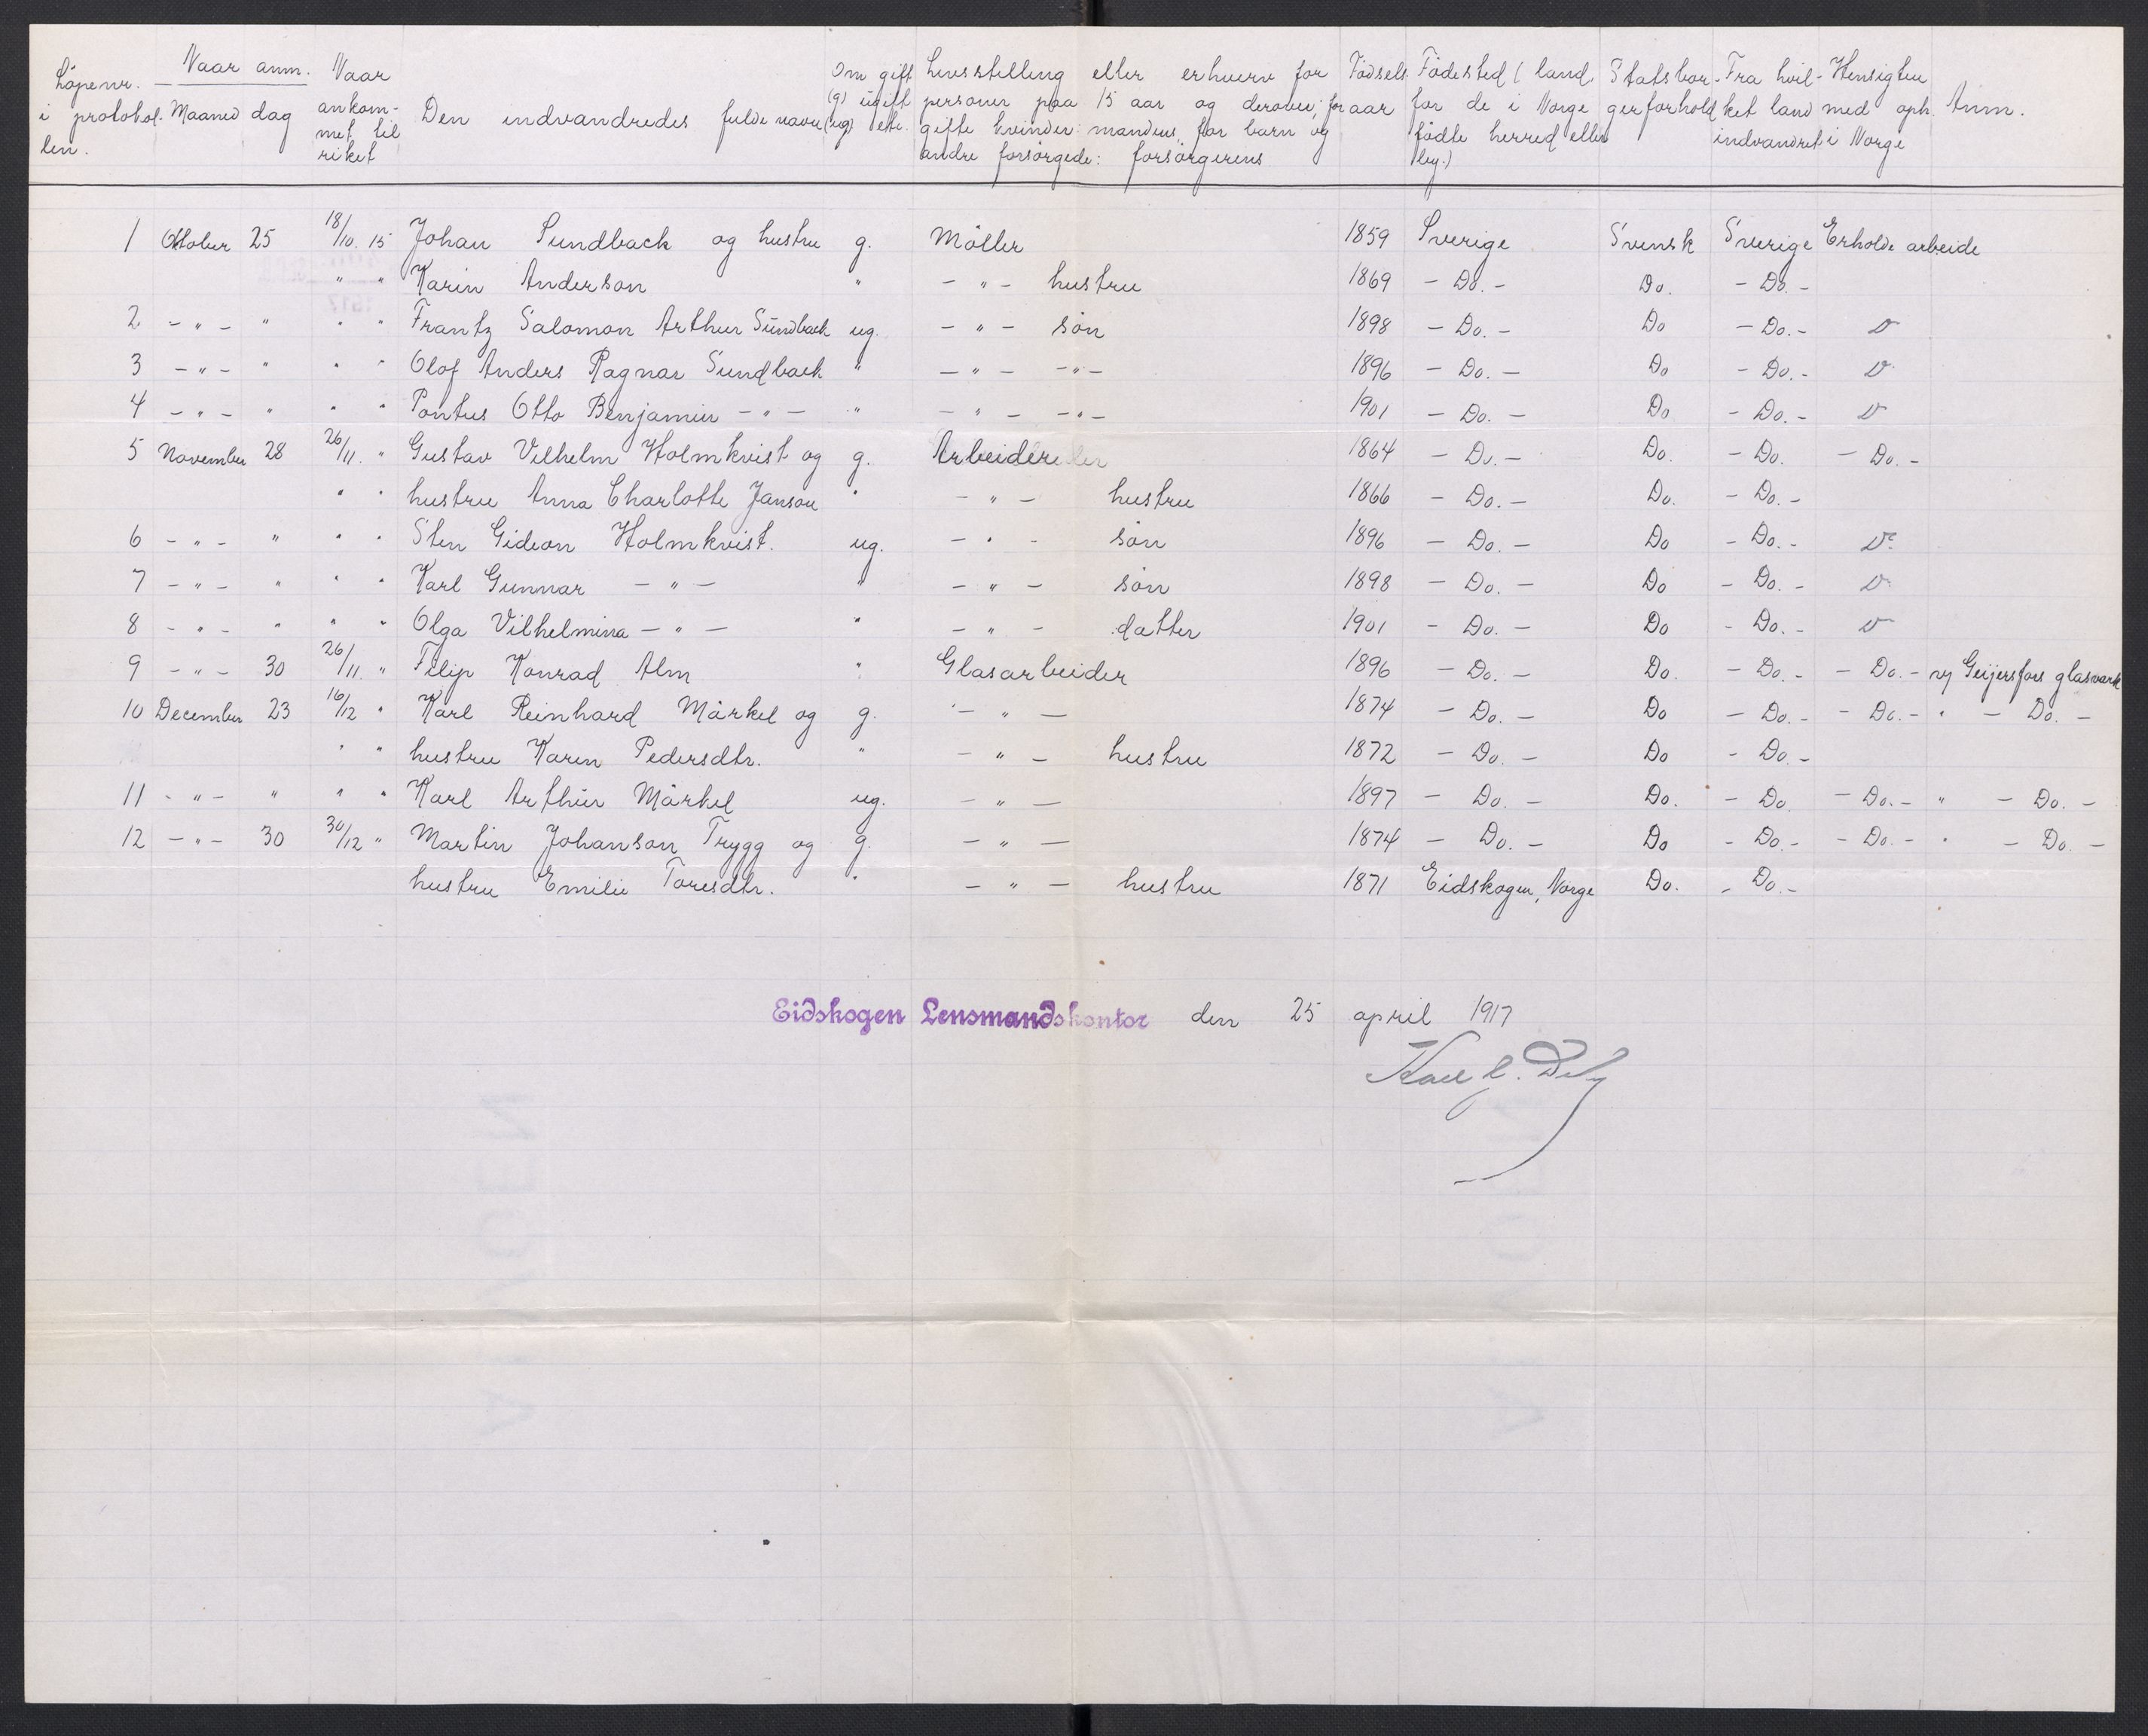 Löpenr. i protokol-len. Naar anm. Maaned dag Naar ankom-met til riket Den indvandredes fulde navn Om gift (g) ugift (ug) etc. Livsstilling eller erhverv for personer paa 15 aar og derover; for gifte kvinder: mandens, for barn og andre forsörgede: forsörgerens Födsels aar Födested (land. for de i Norge födte herred eller by.) Statsbor-gerforhold Fra hvil-ket land indvandret Hensigten med oph. i Norge Anm.
1 Oktober 25 18/10. 15 Johan Sundback og hustru g. Möller 1859 Sverige Svensk Sverige Erholde arbeide
" " Karin Anderson " - " - hustru 1869 - Do. - Do. - Do. -
2 - " - " " " Frantz Salomon Arthur Sundback ug. - " - sön 1898 - Do. - Do - Do. -
3 - " - " " " Olof Anders Ragnar Sundback " - " - - " - 1896 - Do. - Do - Do. -
4 - " - " " " Pontus Otto Benjamin - " - " - " - - " - 1901 - Do. - Do - Do. -
5 November 28 26/11. " Gustav Vilhelm Holmkvist og g. Arbeider 1864 - Do. - Do. - Do. - Do. -
" " hustru Anna Charlotte Janson " - " - hustru 1866 - Do. - Do. - Do. -
6 - " - " " " Sten Gideon Holmkvist. ug. - " - sön 1896 - Do. - Do - Do. -
7 - " - " " " Karl Gunnar - " - " - " - sön 1898 - Do. - Do - Do. -
8 - " - " " " Olga Vilhelmina - " - " - " - datter 1901 - Do. - Do - Do. -
9 - " - 30 26/11. " Filip Konrad Alm " Glasarbeider 1896 - Do. - Do. - Do. - - Do. - v/ Geijersfors glasverk
10 December 23 16/12 " Karl Reinhard Märkel og g. - " - 1874 - Do. - Do - Do. - - Do. - " - Do. -
" " hustru Karen Pedersdtr. " - " - hustru 1872 - Do. - Do - Do. -
11 - " - " " " Karl Arthur Märkel ug. - " - 1897 - Do. - Do. - Do. - Do. - " - Do. -
12 - " - 30 30/12 " Martin Johanson Trygg og g. - " - 1874 - Do. - Do - Do. - - Do. - " - Do. -
hustru Emilie Toresdtr. " - " - hustru 1871 Eidskogen, Norge Do. - Do. -
Eidskogen Lensmandskontor den 25 april 1917